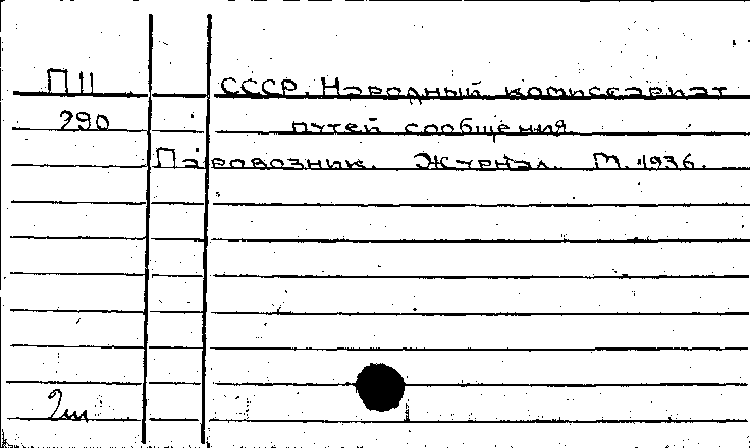 П11 СССР. Народный комиссариат
290 путей сообщения.
Паровозник. Журнал. М. 1936.